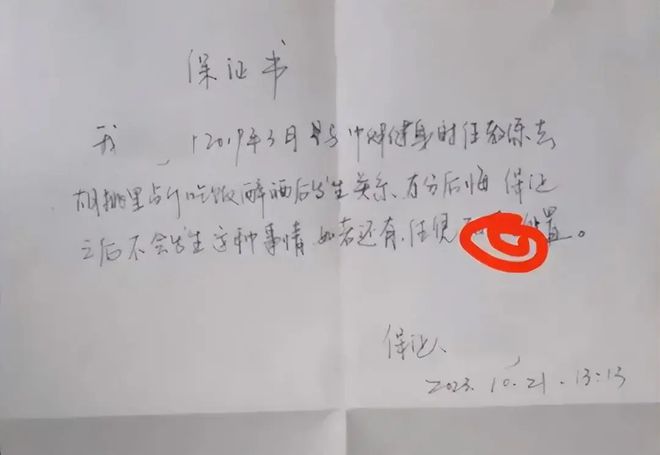 保证书
我 2019年3月 健身时任教练去
胡桃里 吃饭醉酒后发生关系、 分后悔 保证
之后不会发生这种事情、如若还有、任凭 处置。
保证、
2023.10.21.13:13